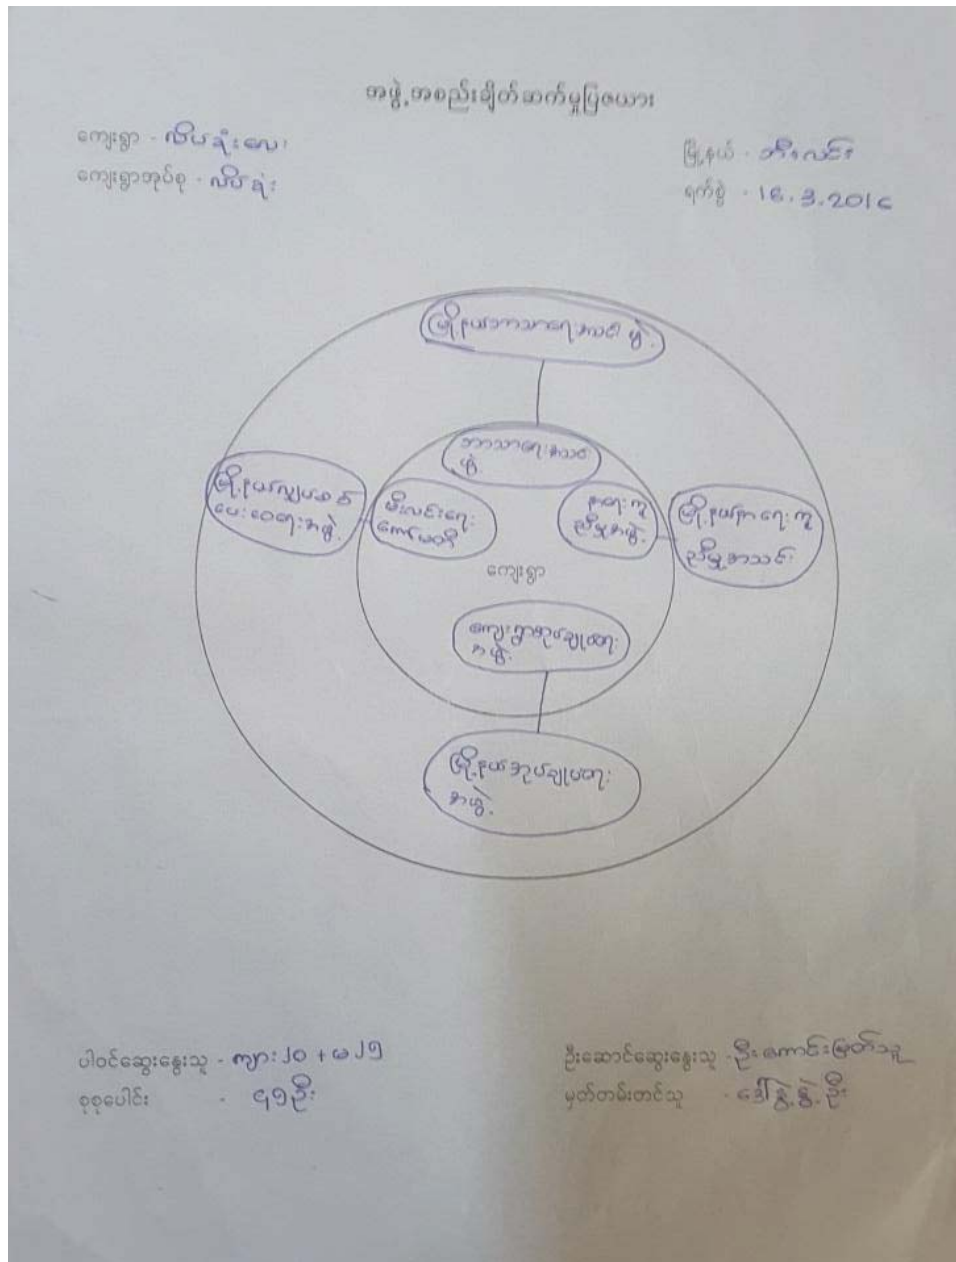 အဖွဲ့အစည်းချိတ်ဆက်မှုပြဇယား
ကျေးရွာ - လိပ်ခုံးလေး
မြို့နယ် - ဘီးလင်း
ကျေးရွာအုပ်စု - လိပ်ခုံး
ရက်စွဲ - 16.3.2016
မြို့နယ်ဘာသာရေးအသင်းဖွဲ့
ဘာသာရေးအသင်း
ဖွဲ့
မြို့နယ်လျှပ်စစ်
ပေးဝေရေးအဖွဲ့
မီးလင်းရေး
ကော်မတီ
နာရေးကူ
ညီမှုအဖွဲ့
မြို့နယ်နာရေးကူ
ညီမှုအသင်း
ကျေးရွာ
ကျေးရွာအုပ်ချုပ်ရေး
အဖွဲ့
မြို့နယ်အုပ်ချုပ်ရေး
အဖွဲ့
ပါဝင်ဆွေးနွေးသူ - ကျား ၂၀ + မ ၂၅
ဦးဆောင်ဆွေးနွေးသူ - ဦးကောင်းမြတ်သူ
စုစုပေါင်း - ၄၅ဦး
မှတ်တမ်းတင်သူ - ဒေါ်နွဲ့နွဲ့ဦး